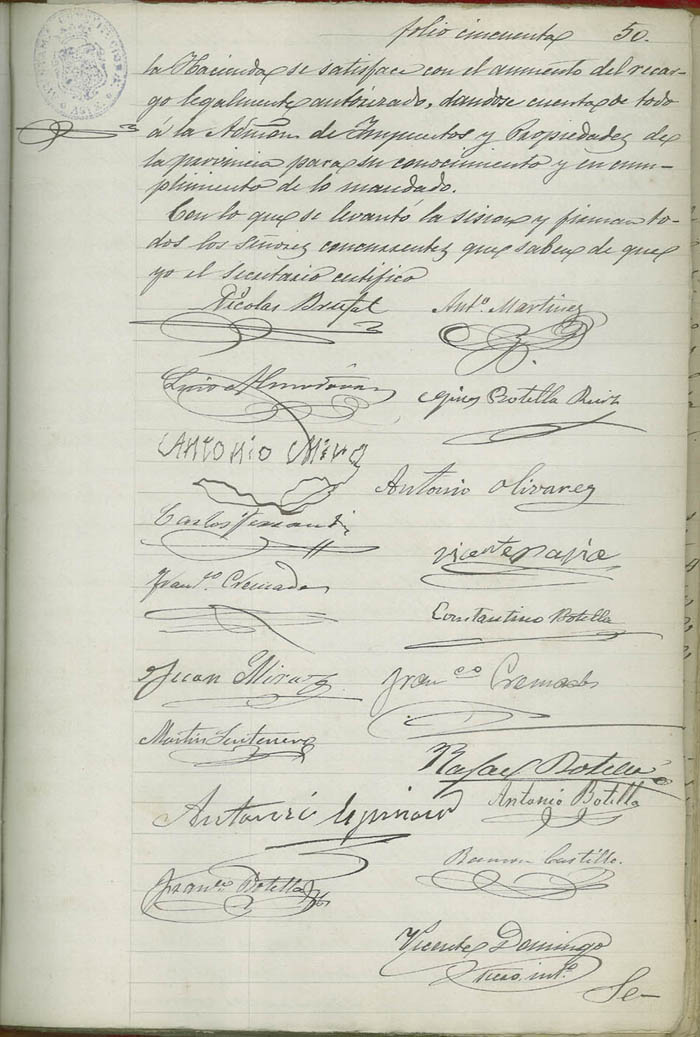 folio cincuenta 50.
la Hacienda se satisface con el aumento del recar-
go legalmente autorizado, dandose cuenta de todo
á la Admon de Impuestos y Propiedades de
la provincia para su conocimiento y en cum-
plimiento de lo mandado.
Con lo que se levantó la sesion y firman to-
dos los señores concurrentes que saben de que
yo el secretario certifico
Nicolas Brufal Antº. Martinez
Gines Botella Ruiz
Antonio Miro
Antonio Olivarez
Carlos
Vicente
Franco. Cremades
Constantino Botella
Juan Mira Franco Cremades
Martin
Rafael Botella
Antonio Botella
Ramon Castillo.
Franco Botella
Vicente Domingo
Srio. intº.
Se-